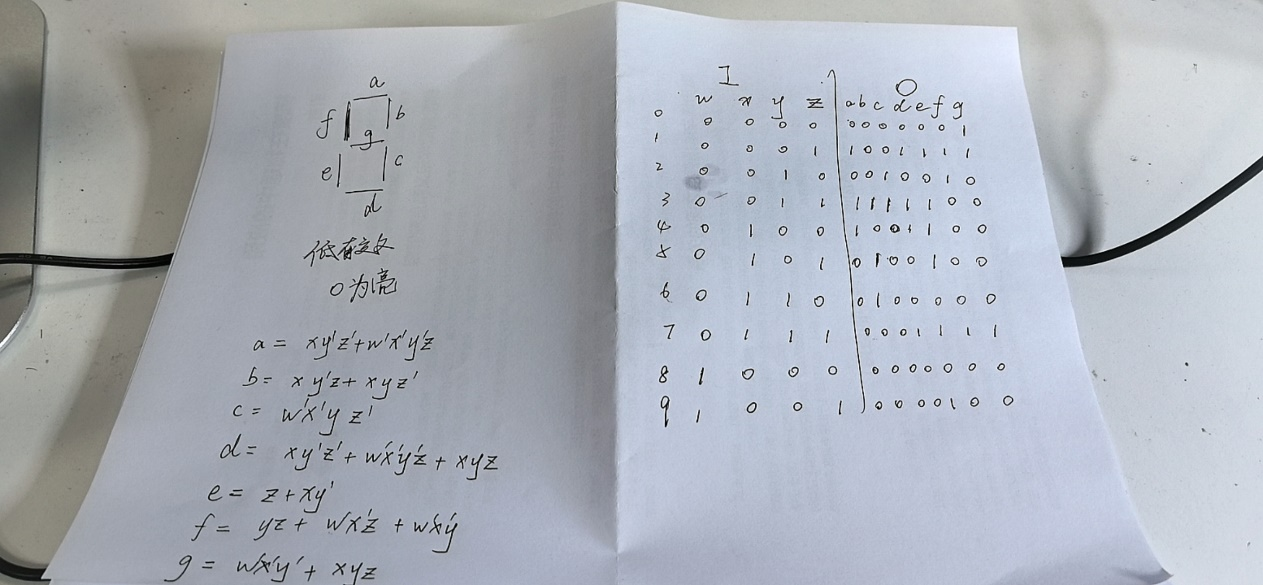 a
f b
g
e c
d
低有效
0为亮
a = xy'z'+w'x'y'z
b = xy'z+xyz'
c = w'x'yz'
d = xy'z'+w'x'y'z+xyz
e = z+xy'
f = yz+w'x'z+w'x'y
g = w'x'y'+xyz
I O
w x y z a b c d e f g
0 0 0 0 0 0 0 0 0 0 0 1
1 0 0 0 1 1 0 0 1 1 1 1
2 0 0 1 0 0 0 1 0 0 1 0
3 0 0 1 1 1 1 1 1 1 0 0
4 0 1 0 0 1 0 0 1 1 0 0
5 0 1 0 1 0 1 0 0 1 0 0
6 0 1 1 0 0 1 0 0 0 0 0
7 0 1 1 1 0 0 0 1 1 1 1
8 1 0 0 0 0 0 0 0 0 0 0
9 1 0 0 1 0 0 0 0 1 0 0